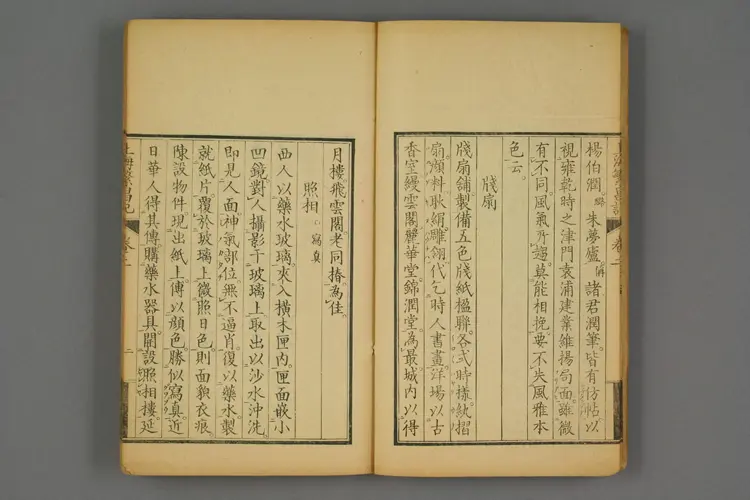 楊伯潤璐朱夢廬偁諸君潤筆皆有仿帖以
視雍乾時之津門袁浦建業維揚局面雖微
有不同風氣所趨莫能相挽要不失風雅本
色云
牋扇
牋扇舖製備五色牋紙楹聯各式時樣紈摺
扇顏料耿絹雕翎代乞時人書畫洋場以古
香室縵雲閣麗華堂錦潤堂為最城內以得
月樓飛雲閣老同椿為佳
照相 寫真
西人以藥水玻璃夾入橫木匣內匣面嵌小
凹鏡對人攝影于玻璃上取出以沙水沖洗
即見人面神氣部位無不逼肖復以藥水製
就紙片覆於玻璃上微照日色則面貌衣痕
陳設物件現出紙上傅以顏色勝似寫真近
日華人得其傳購藥水器具開設照相樓延
上海繁昌記
卷二
二